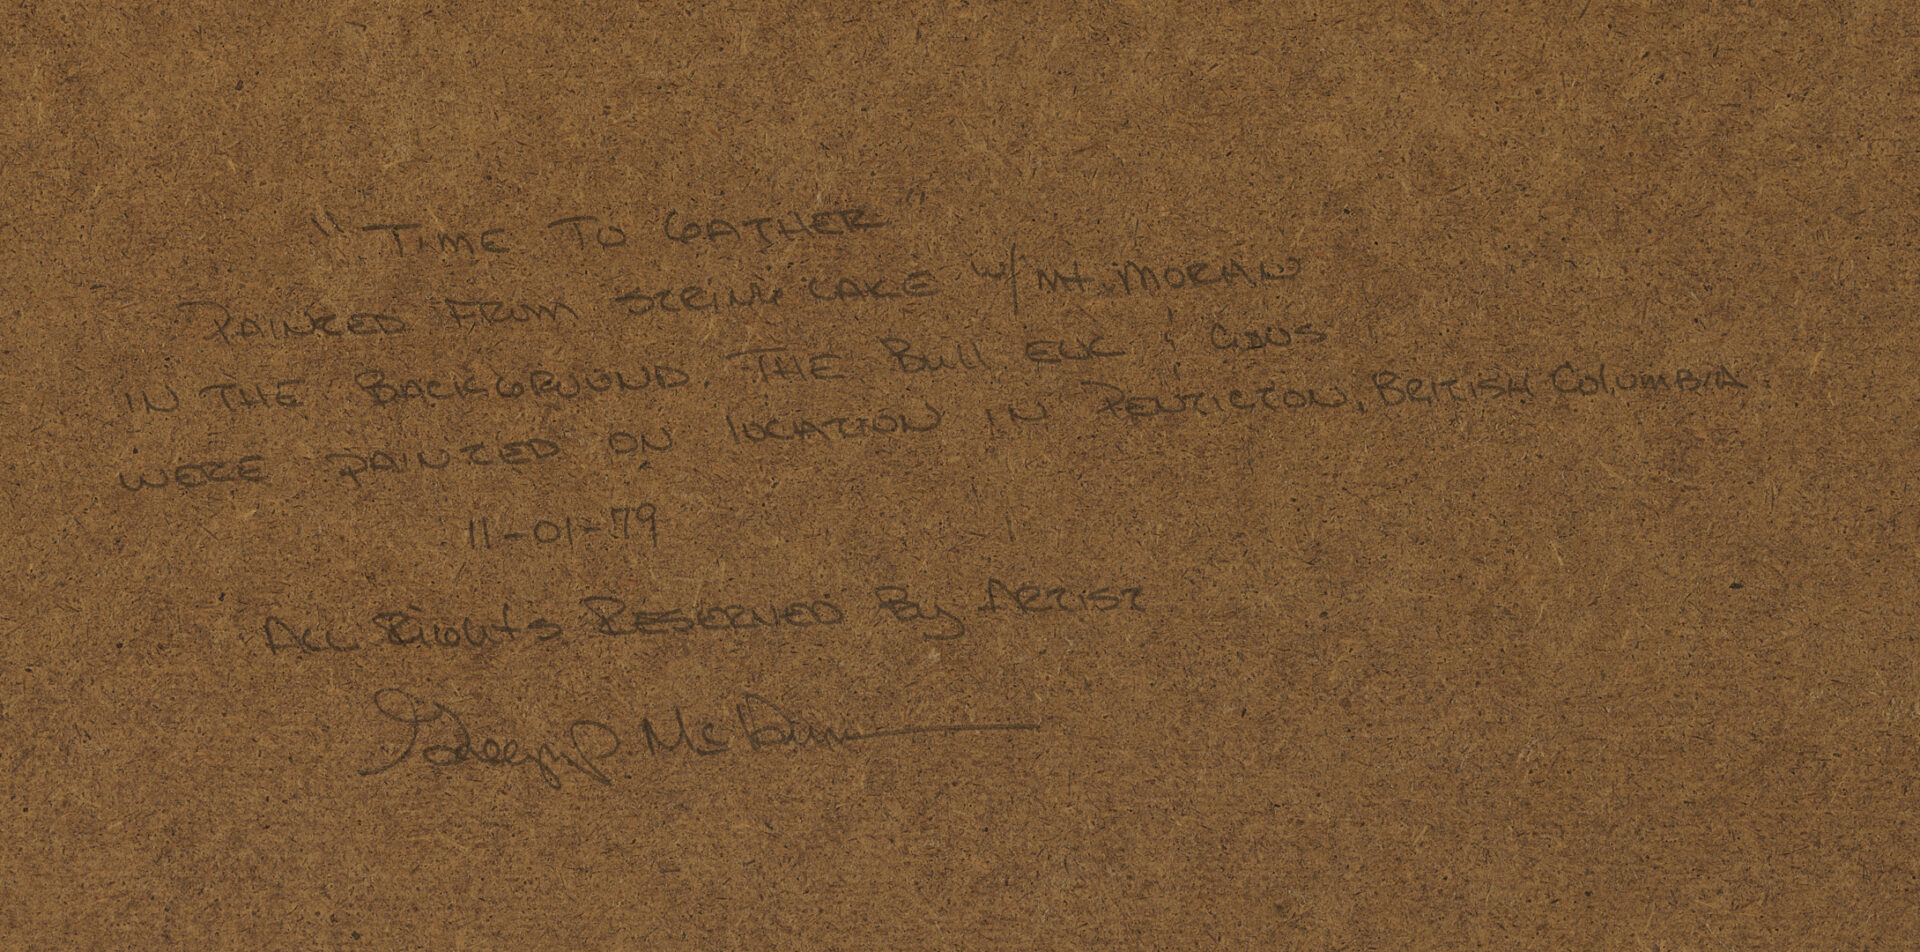 "TIME TO GATHER"
PAINTED FROM STRING LAKE W/ Mt. MORAN
IN THE BACKGROUND. THE Bull ELK & COWS
WERE PAINTED ON lOCATION IN PENTICTON, BRITISH COlUMBIA.
11-01-79
ALL RIGHtS RESERVED By ARTIST